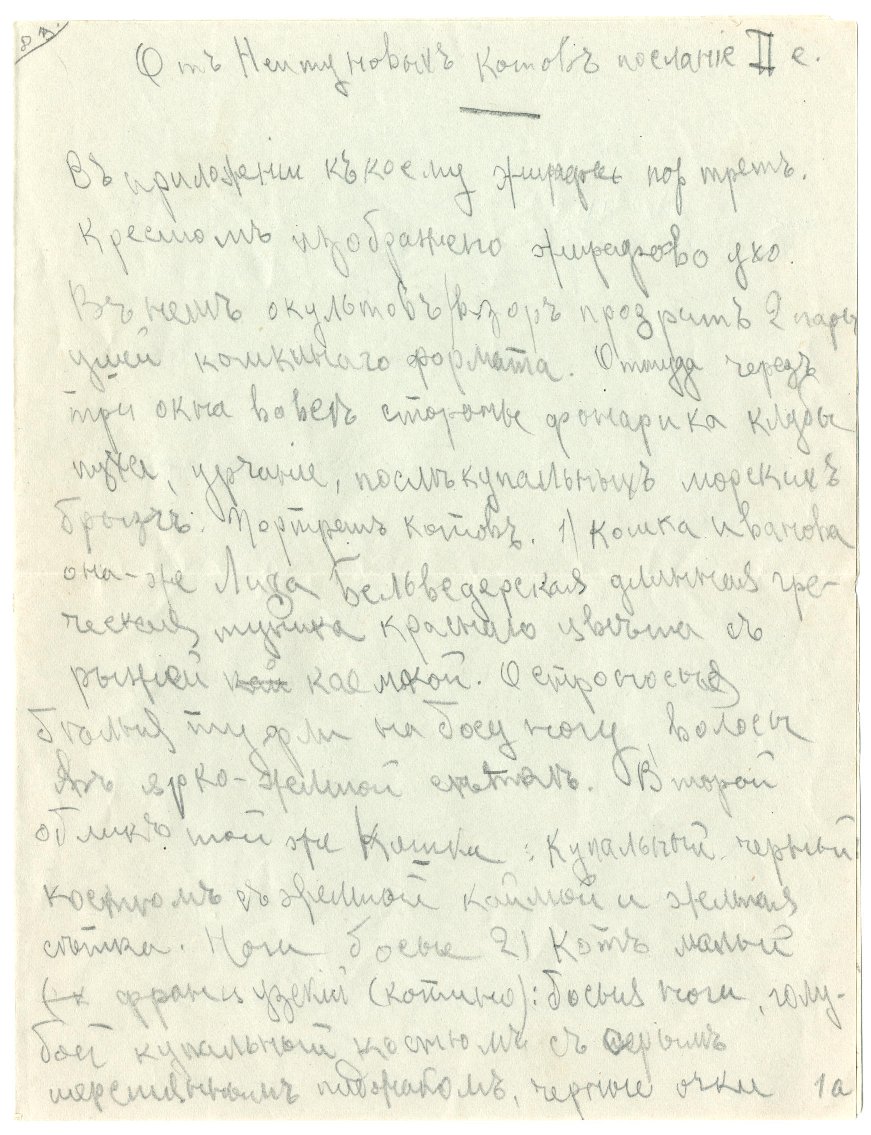 8 а.
Отъ Нептуновыхъ котовъ посланіе II е.
Въ приложеніи къ коему жирафье портретъ.
Крестомъ изображено жирафово ухо.
Въ немъ окультовъ взоръ прозритъ 2 пары
ушей комкинаго формата. Оттуда черезъ
три окна во всѣ стороны фонарика клубы
пуха, урчаніе, послѣкупальныхъ морскихъ
брызгъ. Портретъ котовъ. 1) кошка Иванова
она-же Лиза Бельведерская длинная гре-
ческая туника краснаго цвѣта съ
рыжей каемкой. Остроносыя
бѣлыя туфли на босу ногу, волосы
въ ярко-желтой сѣткѣ. Второй
обликъ той же Кошки: купальный черный
костюмъ съ желтой каймой и желтая
сѣтка. Ноги босые 2) Котъ малый
французскій (котино): босыя ноги, голу-
бой купальный костюмъ съ серымъ
шерстянымъ пиджакомъ, черные очки 1а